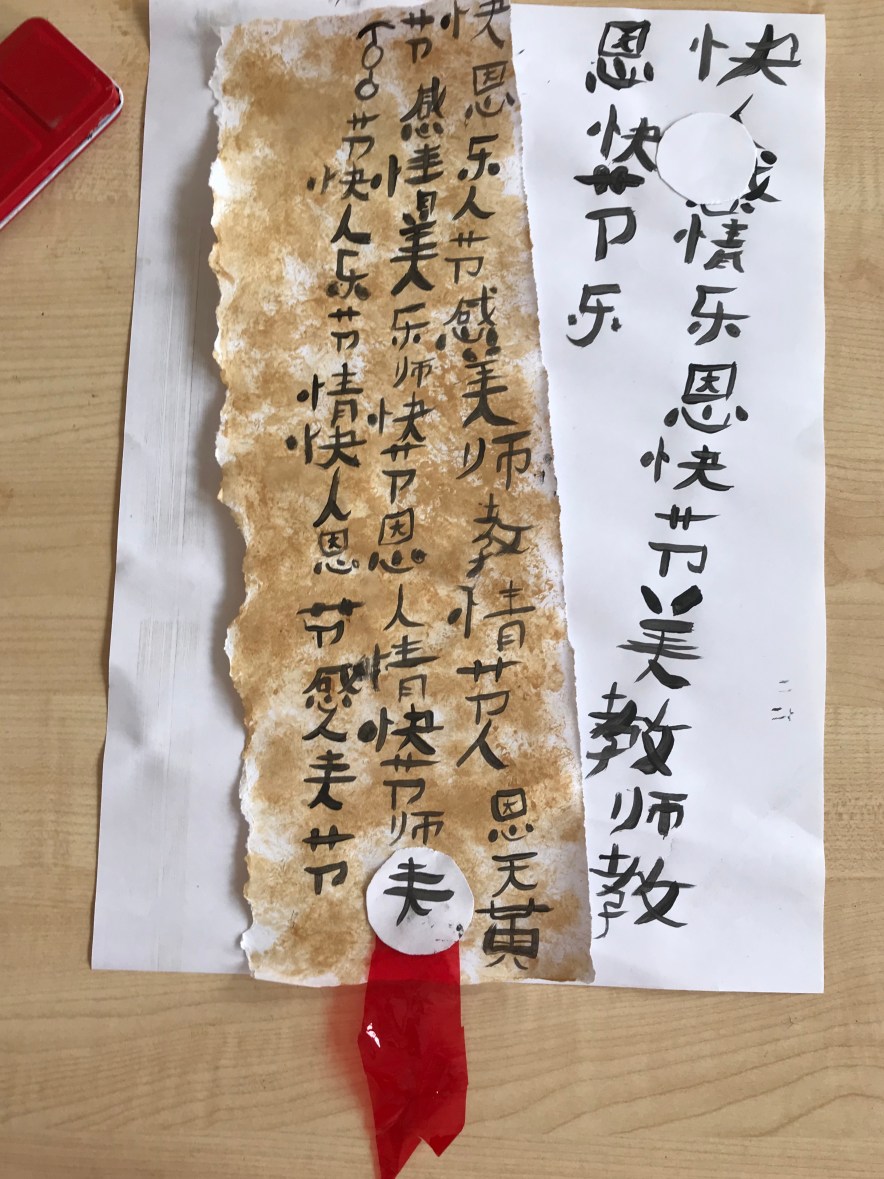 快人感情乐恩快节美教师教
恩快节乐
快恩乐人节感美师教情节人恩天黄
节感情美乐师快节恩人情快节师
节快人乐节情快人恩节感人夫节
夫